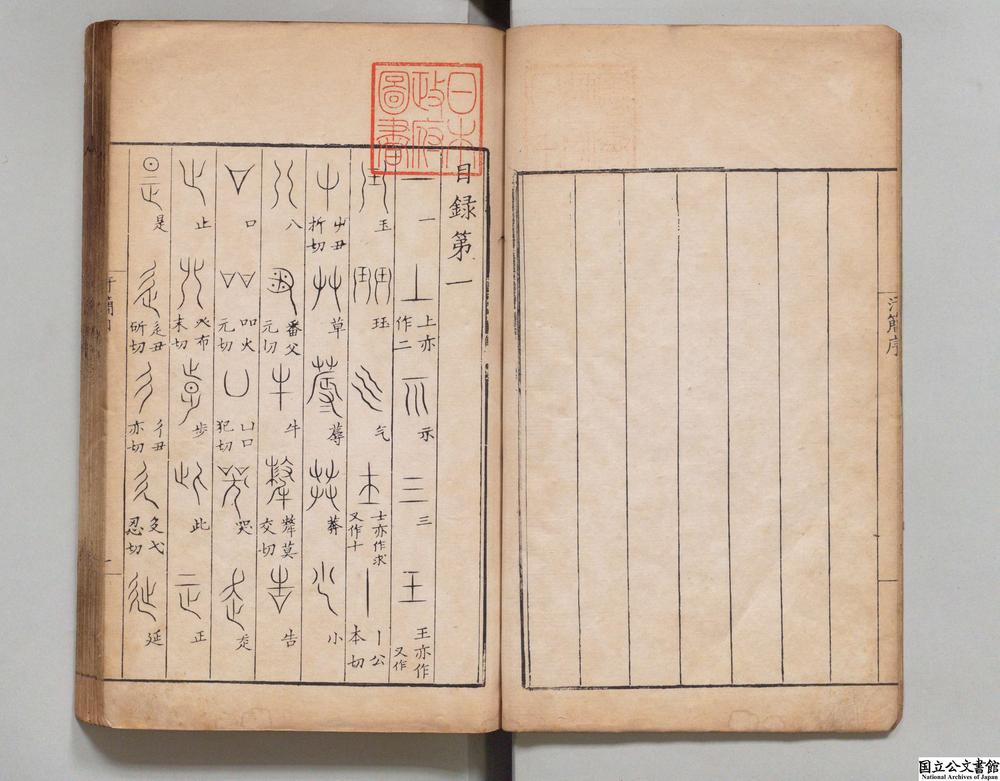 汗簡序
日本
政府
圖書
目録第一
一 上亦作二 示 三 王亦作 又作
玉 珏 气 士亦作求又作十 丨公本切
屮丑折切 草 蓐 茻 小
八 番父元切 牛 犛莫交切 告
口 吅火元切 凵口犯切 哭 走
止 癶布末切 步 此 正
是 辵丑斫切 彳丑亦切 廴弋忍切 延
国立公文書館
National Archives of Japan